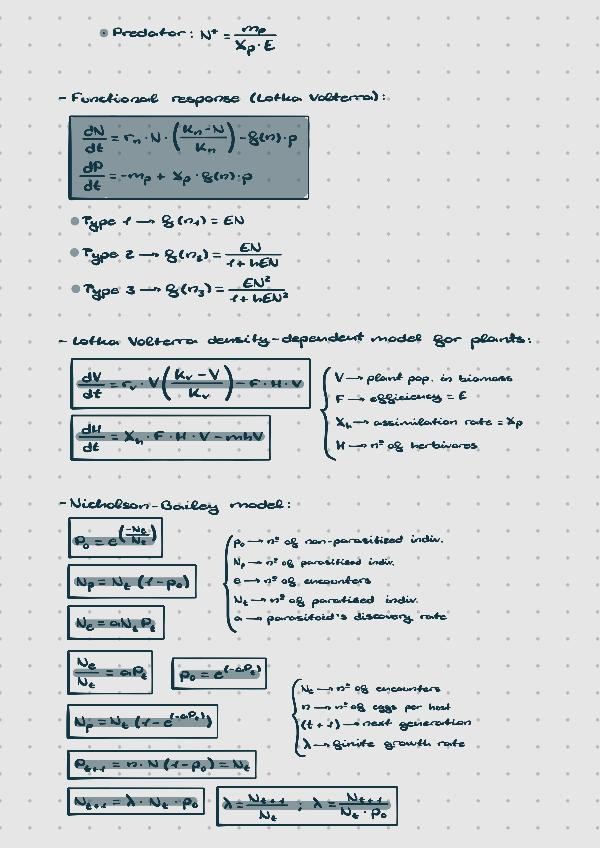 • Predator: N* = mp / (Xp · E)
- Functional response (Lotka Volterra):
dN/dt = rn · N · ((Kn - N) / Kn) - f(n) · p
dP/dt = -mp + Xp · f(n) · p
• Type 1 → f(n1) = EN
• Type 2 → f(n2) = EN / (1 + hEN)
• Type 3 → f(n3) = EN² / (1 + hEN²)
- Lotka Volterra density-dependent model for plants:
dV/dt = rv · V ((Kv - V) / Kv) - F · H · V
V → plant pop. in biomass
F → efficiency = E
Xh → assimilation rate = Xp
H → nº of herbivores
dH/dt = Xh · F · H · V - mhV
- Nicholson-Bailey model:
p0 = e^(-Ne/Nt)
Np = Nt (1 - p0)
Ne = aNt Pt
p0 → nº of non-parasitized indiv.
Np → nº of parasitized indiv.
e → nº of encounters
Nt → nº of paratised indiv.
a → parasitoid's discovery rate
Ne/Nt = aPt
p0 = e^(-aPt)
Np = Nt (1 - e^(-aPt))
Pt+1 = n · N (1 - p0) = Nt
Nt → nº of encounters
n → nº of eggs per host
(t + 1) → next generation
λ → finite growth rate
Nt+1 = λ · Nt · p0
λ = Nt+1 / Nt ; λ = Nt+1 / (Nt · p0)